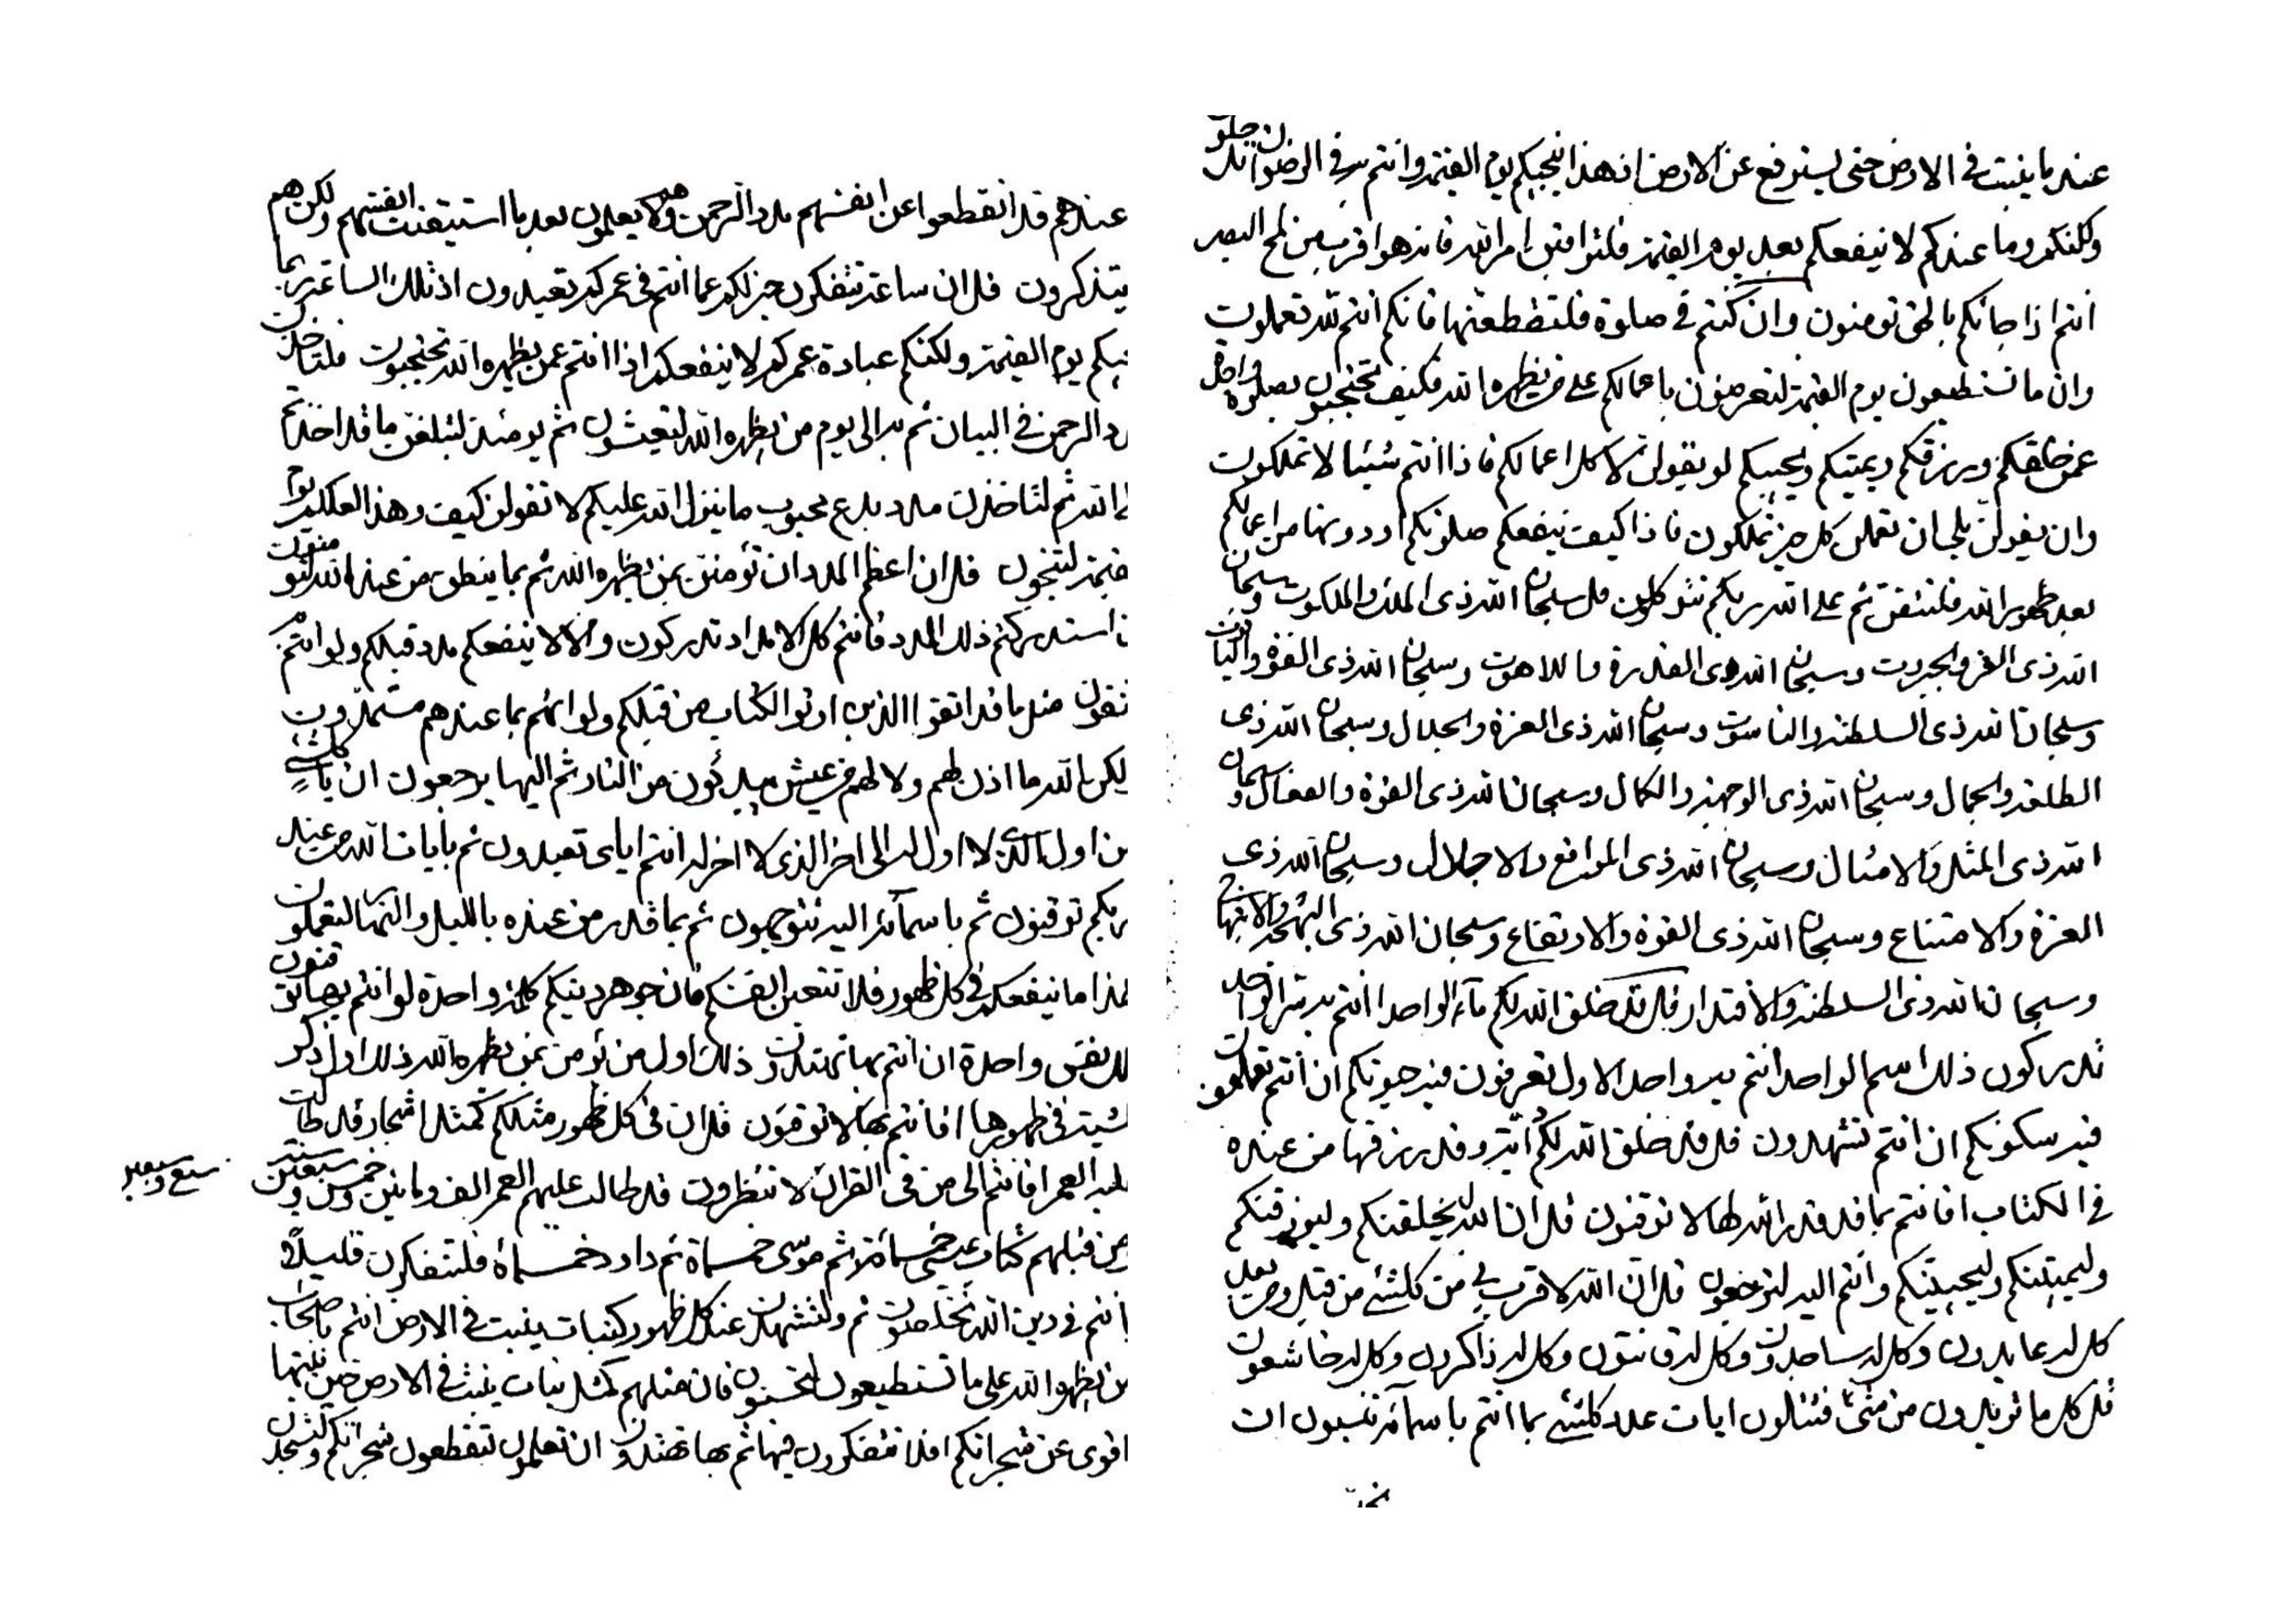 عند ما ينبت فى الارض حتى ليسترفع عن الارض ان هذا ينجيكم يوم القيمة وانتم به فى الرضوان تدخلون
ولكنكم وما عندكم لا ينفعكم بعد يوم القيمة فلتراقبن امر الله فانه هو اقرب من لمح البصر
انتم اذا جائكم بالحق تؤمنون وان كنتم فى صلوة فلتقطعنها فانكم انتم لله تعملون
وان ما تستطيعون يوم القيمة لتعرضون باعمالكم على من يظهره الله فكيف تحتجبون بصلوة واحدة
عمن خلقكم ورزقكم ويميتكم ويحييكم لو يقولن لا كل اعمالكم فاذا انتم شيئا لا تملكون
وان يقولن بلى ان تعملن كل خير تملكون فاذا كيف ينفعكم صلوتكم او دونها من اعمالكم
بعد ظهور الله فلتتقن ثم على الله ربكم تتوكلون قل سبحان الله ذى الملك والملكوت وسبحان
الله ذى العز والجبروت وسبحان الله ذى القدرة واللاهوت وسبحان الله ذى القوة والياقوت
وسبحان الله ذى السلطنة والناسوت وسبحان الله ذى العزة والجلال وسبحان الله ذى
الطلعة والجمال وسبحان الله ذى الوجهة والكمال وسبحان الله ذى القوة والفعال وسبحان
الله ذى المثل والامثال وسبحان الله ذى المواقع والاجلال وسبحان الله ذى
العزة والامتناع وسبحان الله ذى القوة والارتفاع وسبحان الله ذى البهجة والابتهاج
وسبحان الله ذى السلطنة والاقتدار قل قد خلق الله لكم ماء الواحد انتم به سر الواحد
تدركون ذلك اسم الواحد انتم به واحد الاول تعرفون فيه حيوتكم ان انتم تعلمون
فيه سكونكم ان انتم تشهدون قل قد خلق الله لكم وقد رزقها من عنده
فى الكتاب افانتم بما قد قدر الله لها لا توقنون قل ان الله ليخلقنكم وليرزقنكم
وليميتنكم وليحيينكم وانتم اليه لترجعون قل ان الله لاقرب بى من كلشئ من قبل ومن بعد
كل له عابدون وكل له ساجدون وكل له قانتون وكل له ذاكرون وكل له خاشعون
قل كل ما تريدون من شئ فتتلون ايات عدد كلشئ بما انتم باسمائه تنسبون ان
عندهم قد انقطعوا عن انفسهم مدد الرحمن وهم لا يعلمون بعد ما استيقنت انفسهم ولكن هم
يتذكرون قل ان ساعة تتفكرن خير لكم عما انتم فى عمركم تعبدون اذ تلك الساعة ربما
ينجيكم يوم القيمة ولكنكم عبادة عمركم لا ينفعكم اذا انتم عمن يظهره الله تحتجبون فلتاخذن
مدد الرحمن فى البيان ثم به الى يوم من يظهره الله لتعيشون ثم يومئذ لتبلغن ما قد اخذتم
الله ثم لتاخذن مدد بدع محبوب ما ينزل الله عليكم لا تقولن كيف وهذا لعلكم يوم
القيمة لتنجون قل ان اعظم المدد ان تؤمنن بمن يظهره الله ثم بما ينطق من عند الله لتوقنون
ان استدركتم ذلك المدد فانتم كل الامداد تدركون والا لا ينفعكم مدد قبلكم ولو انتم
تتقون مثل ما قد اتقوا الذين اوتوا الكتاب من قبلكم ولو انهم بما عندهم مستمدون
ولكن بالله ما اذن لهم ولا لهم من عيش يبدئون من النار ثم اليها يرجعون ان يا كلشئ
من اول الذى لا اول له الى اخر الذى لا اخر له انتم اياى تعبدون ثم بايات الله من عند
ربكم توقنون ثم باسمائه اليه تتوجهون ثم بما قدر من عنده بالليل والنهار لتعملون
هذا ما ينفعكم فى كل ظهور فلا تتعبن انفسكم فان جوهر دينكم كلمة واحدة لو انتم بها توقنون
نفس واحدة ان انتم بها تهتدون ذلك اول من يؤمن بمن يظهره الله ذلك اول ذكر
شيئت فى ظهورها افانتم بها لا توقنون قل ان فى كل ظهور مثلكم كمثل اشجار قد طالت
عليه العمر افانتم الى من فى القران لا تنظرون قد طالت عليهم العمر الف ومأتين وخمس وسبعين سنة
سبع وسبعين
من قبلهم كتاب عيسى خمسمائة ثم موسى خمسمائة ثم داود خمسمائة فلتتفكرن قليلا
انتم فى دين الله تخلصون ثم ولتشهدن عند كل ظهور كنبات ينبت فى الارض انتم باصحاب
من يظهر الله على ما تستطيعون لتحسنون فان مثلهم كمثل نبات ينبت فى الارض حين نبتها
اقوى عن شجراتكم افلا تتفكرون فيها ثم بها تهتدون ان تعلمون لتقطعون شجراتكم ولتسجدن